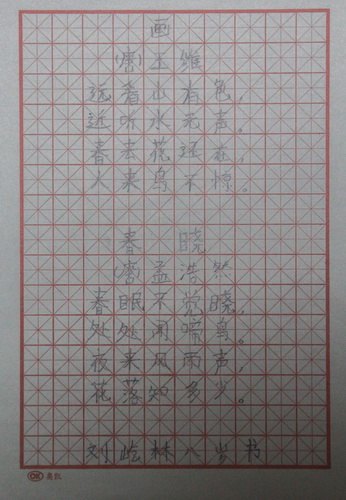 画
(唐)王维
远看山有色,
近听水无声。
春去花还在,
人来鸟不惊。
春晓
(唐)孟浩然
春眠不觉晓,
处处闻啼鸟。
夜来风雨声,
花落知多少。
刘屹林八岁书
OK